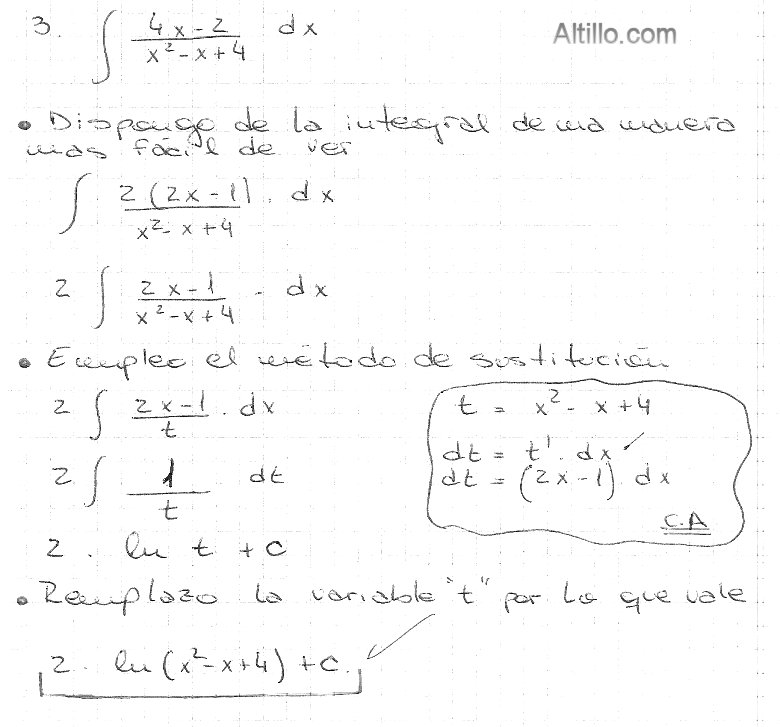 3. ∫ (4x-2)/(x²-x+4) dx
Altillo.com
• Dispongo de la integral de una manera
mas fácil de ver
∫ 2(2x-1)/(x²-x+4) . dx
2 ∫ (2x-1)/(x²-x+4) . dx
• Empleo el método de sustitución
2 ∫ (2x-1)/t . dx
2 ∫ 1/t dt
2 . ln t + c
t = x² - x + 4
dt = t' . dx
dt = (2x-1) dx
C.A
• Remplazo la variable "t" por lo que vale
2 . ln (x²-x+4) + c.